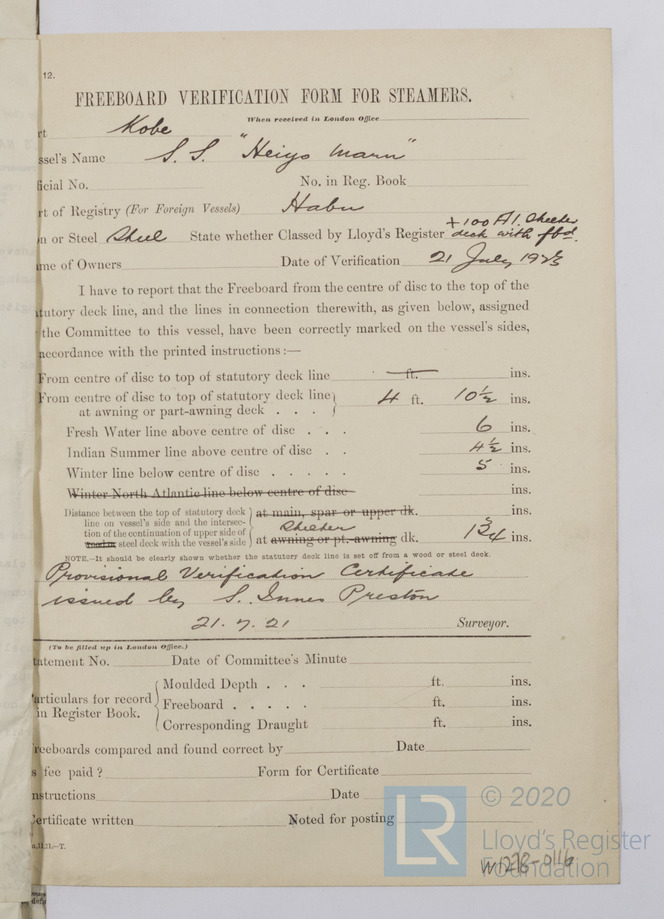 12.
FREEBOARD VERIFICATION FORM FOR STEAMERS.
When received in London Office
rt Kobe
ssel's Name S. S. "Heiyo Maru"
ficial No. No. in Reg. Book
rt of Registry (For Foreign Vessels) Habu
+100 A1. Shelter
n or Steel Steel State whether Classed by Lloyd's Register deck with fbd.
me of Owners Date of Verification 21 July 19
I have to report that the Freeboard from the centre of disc to the top of the
tutory deck line, and the lines in connection therewith, as given below, assigned
the Committee to this vessel, have been correctly marked on the vessel's sides,
accordance with the printed instructions :—
From centre of disc to top of statutory deck line ft. ins.
From centre of disc to top of statutory deck line
at awning or part-awning deck . . . 4 ft. 10½ ins.
Fresh Water line above centre of disc . . . 6 ins.
Indian Summer line above centre of disc . . 4½ ins.
Winter line below centre of disc . . . . . 5 ins.
Winter North Atlantic line below centre of disc ins.
Distance between the top of statutory deck
line on vessel's side and the intersec-
tion of the continuation of upper side of
steel deck with the vessel's side
at main, spar or upper dk.
Shelter
at awning or pt. awning dk. ins.
NOTE.—It should be clearly shown whether the statutory deck line is set off from a wood or steel deck.
Provisional Verification Certificate
issued by S. Innes Preston
21. 7. 21 Surveyor.
(To be filled up in London Office.)
tatement No. Date of Committee's Minute
articulars for record
in Register Book.
Moulded Depth . . . ft. ins.
Freeboard . . . . . ft. ins.
Corresponding Draught ft. ins.
reeboards compared and found correct by Date
s fee paid ? Form for Certificate
nstructions Date
ertificate written Noted for posting
LR
© 2020
Lloyd's Register
Foundation
W1278-0116